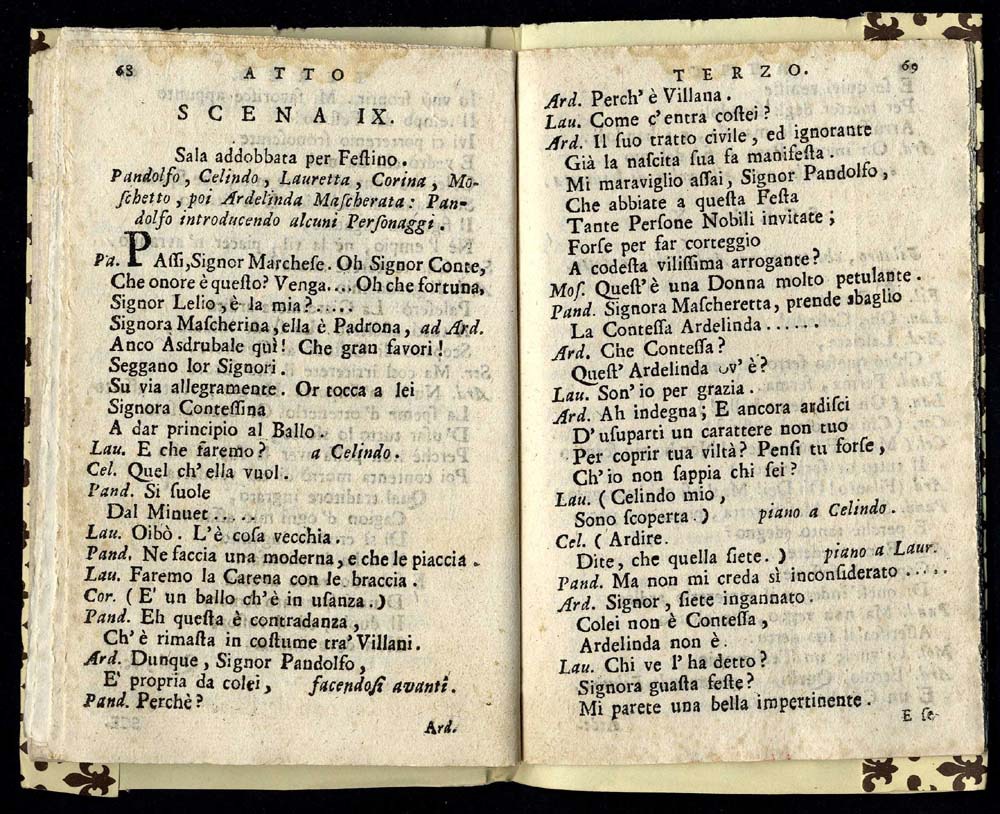 68
ATTO
SCENA IX.
Sala addobbata per Feſtino.
Pandolfo, Celindo, Lauretta, Corina, Mo-
ſchetto, poi Ardelinda Maſcherata: Pan-
dolfo introducendo alcuni Perſonaggi.
Pa. PAſſi, Signor Marcheſe. Oh Signor Conte,
Che onore è queſto? Venga.... Oh che fortuna,
Signor Lelio, è la mia? .....
Signora Maſcherina, ella è Padrona, ad Ard.
Anco Asdrubale quì! Che gran favori!
Seggano lor Signori.
Su via allegramente. Or tocca a lei
Signora Conteſſina
A dar principio al Ballo.
Lau. E che faremo? a Celindo.
Cel. Quel ch' ella vuol.
Pand. Si ſuole
Dal Minuet.....
Lau. Oibò. L'è coſa vecchia.
Pand. Ne faccia una moderna, e che le piaccia.
Lau. Faremo la Carena con le braccia.
Cor. (E' un ballo ch'è in uſanza.)
Pand. Eh queſta è contradanza,
Ch'è rimaſta in coſtume tra' Villani.
Ard. Dunque, Signor Pandolfo,
E' propria da colei, facendoſi avanti.
Pand. Perchè?
Ard.
TERZO.
69
Ard. Perch' è Villana.
Lau. Come c' entra coſtei?
Ard. Il ſuo tratto civile, ed ignorante
Già la naſcita ſua fa manifeſta.
Mi maraviglio aſſai, Signor Pandolfo,
Che abbiate a queſta Feſta
Tante Perſone Nobili invitate;
Forſe per far corteggio
A codeſta viliſſima arrogante?
Moſ. Queſt' è una Donna molto petulante.
Pand. Signora Maſcheretta, prende sbaglio
La Conteſſa Ardelinda ......
Ard. Che Conteſſa?
Queſt' Ardelinda ov' è?
Lau. Son' io per grazia.
Ard. Ah indegna; E ancora ardiſci
D' uſuparti un carattere non tuo
Per coprir tua viltà? Penſi tu forſe,
Ch' io non ſappia chi ſei?
Lau. (Celindo mio,
Sono ſcoperta.) piano a Celindo.
Cel. (Ardire.
Dite, che quella ſiete.) piano a Laur.
Pand. Ma non mi creda sì inconſiderato .....
Ard. Signor, ſiete ingannato.
Colei non è Conteſſa,
Ardelinda non è.
Lau. Chi ve l' ha detto?
Signora guaſta feſte?
Mi parete una bella impertinente.
E ſe